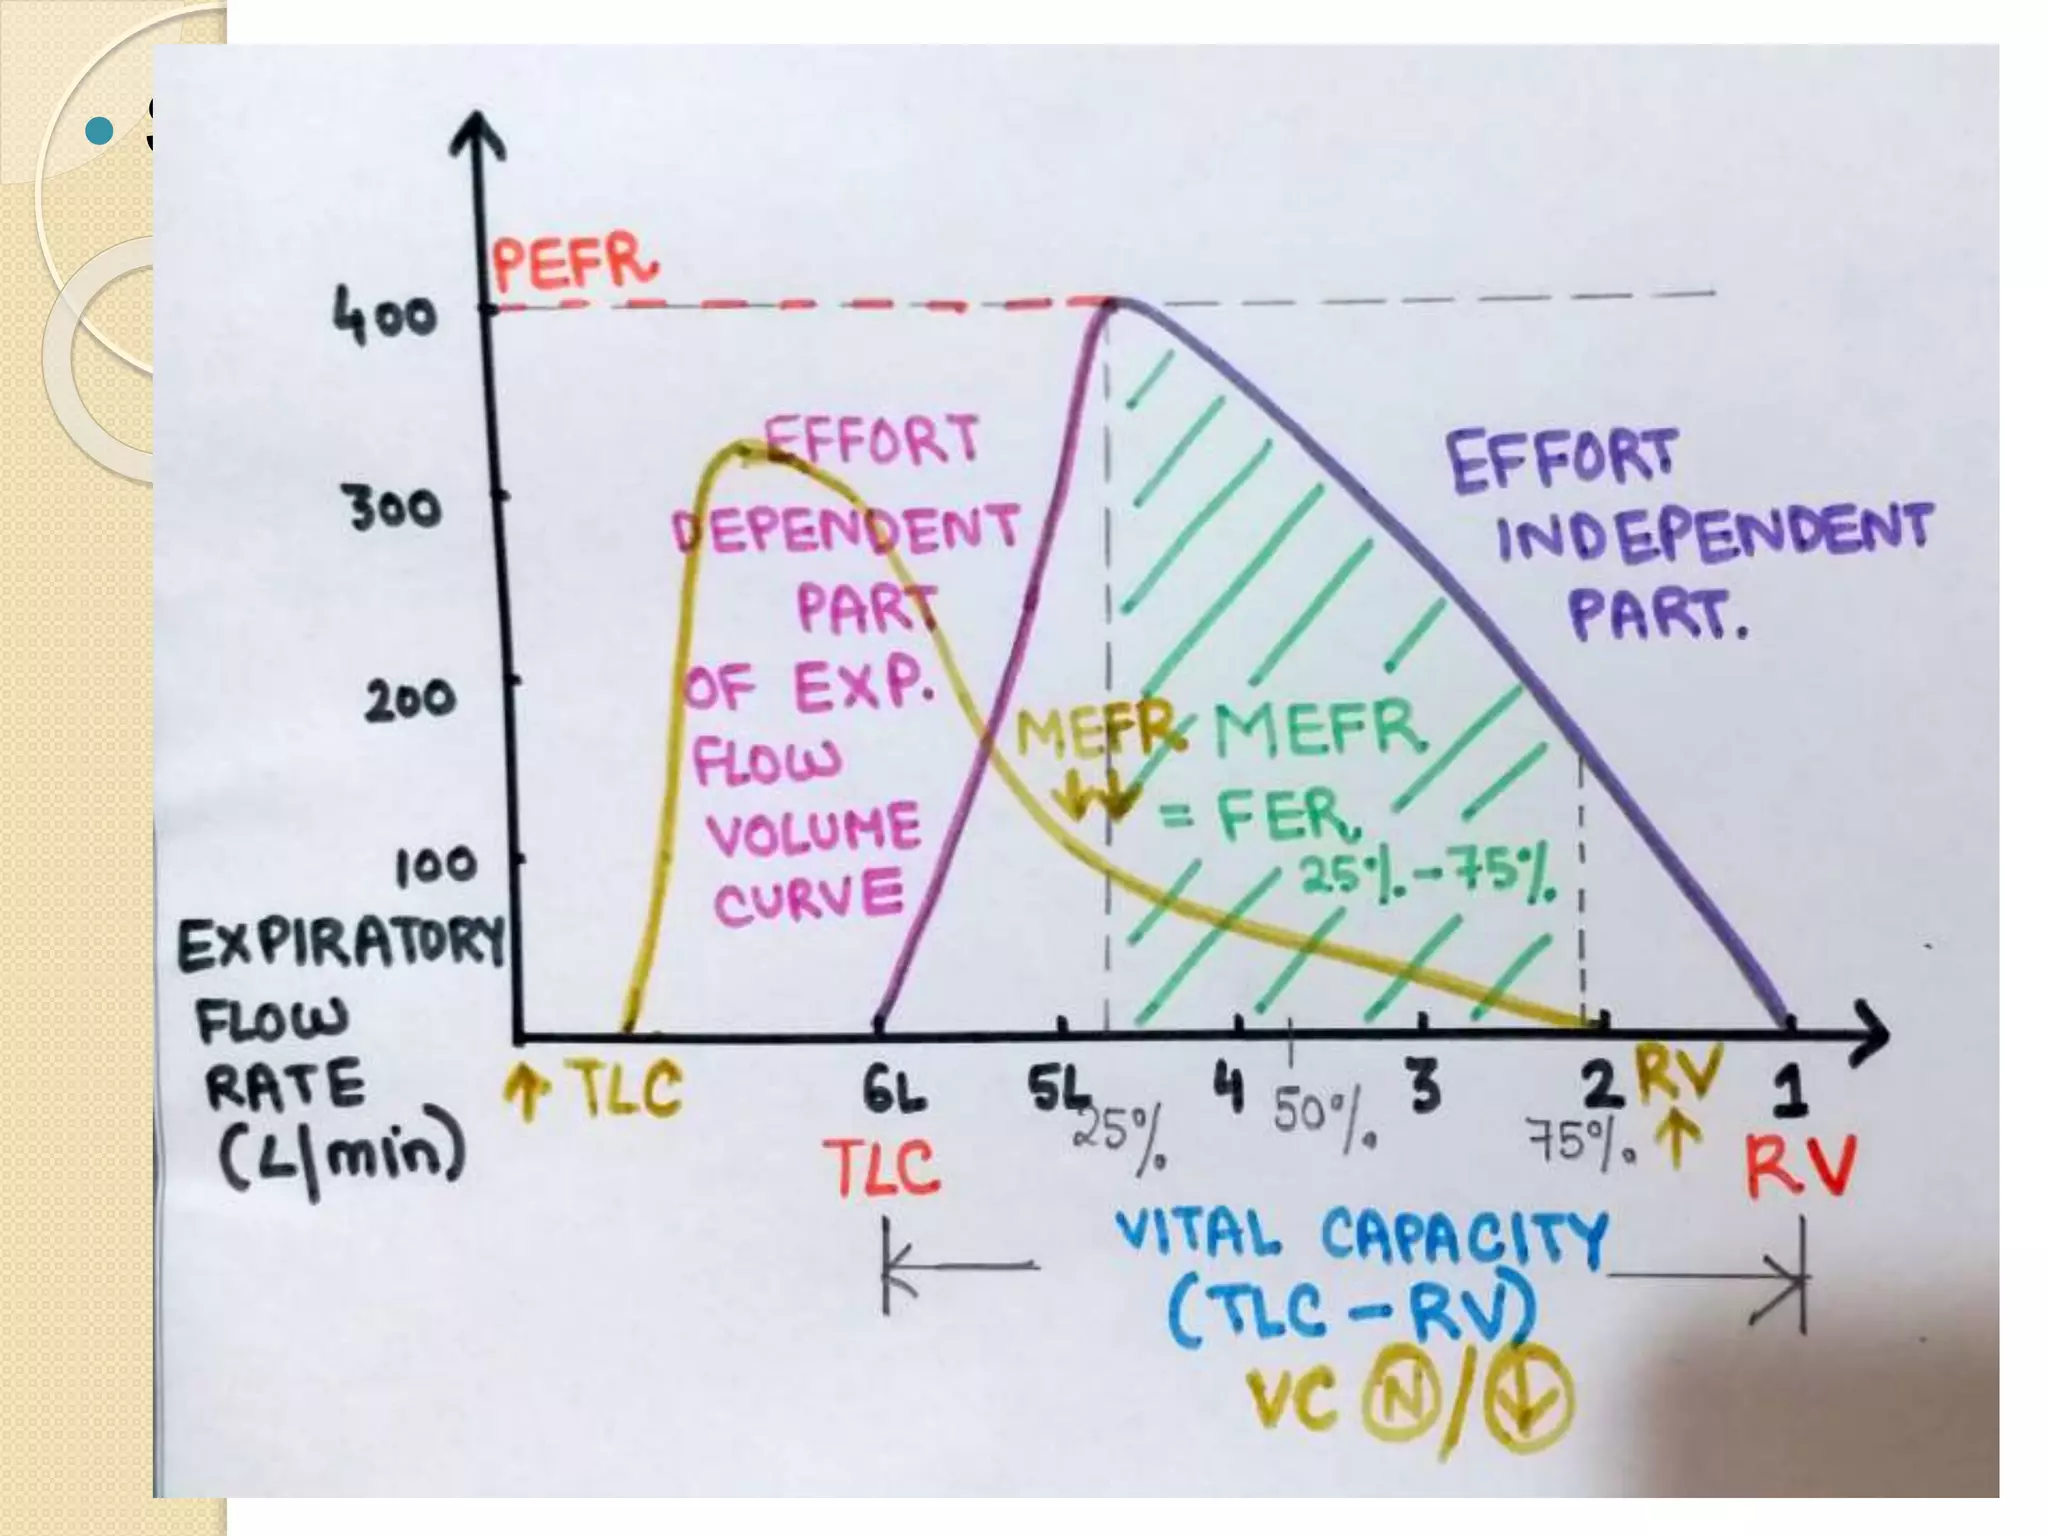 PEFR
400
300
200
100
EXPIRATORY
FLOW
RATE
(L/min)
EFFORT
DEPENDENT
PART
OF EXP.
FLOW
VOLUME
CURVE
EFFORT
INDEPENDENT
PART.
MEFR
↓↓
MEFR
= FER
25%-75%
↑ TLC
6L 5L 4 3 2 RV 1
25% 50%. 75%. ↑
TLC RV
VITAL CAPACITY
(TLC-RV)
VC N/↓